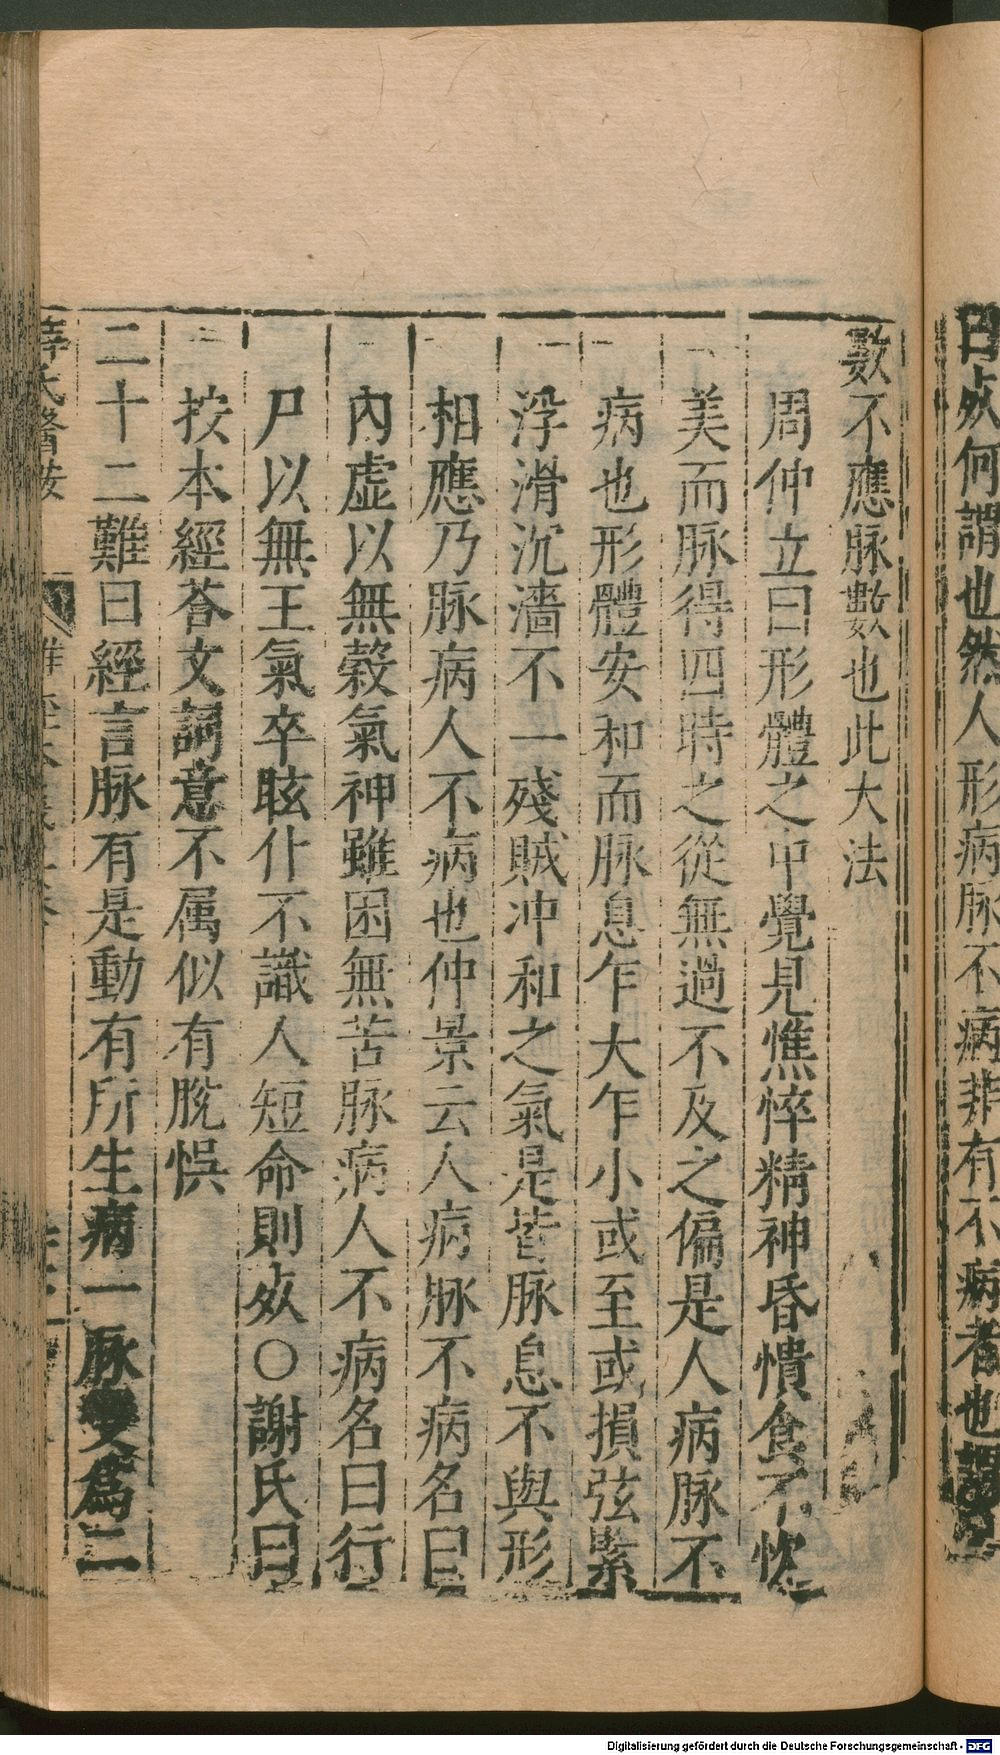 曰然何謂也然人形病脉不病非有不病者也謂息
數不應脉數也此大法
周仲立曰形體之中覺見憔悴精神昏憒食不忺
美而脉得四時之從無過不及之偏是人病脉不
病也形體安和而脉息乍大乍小或至或損弦緊
浮滑沉濇不一殘賊冲和之氣是皆脉息不與形
相應乃脉病人不病也仲景云人病脉不病名曰
內虛以無穀氣神雖困無苦脉病人不病名曰行
尸以無王氣卒眩仆不識人短命則死○謝氏曰
按本經荅文詞意不属似有脫悞
二十二難曰經言脉有是動有所生病一脉變爲二
薛氏醫按
Digitalisierung gefördert durch die Deutsche Forschungsgemeinschaft - DFG